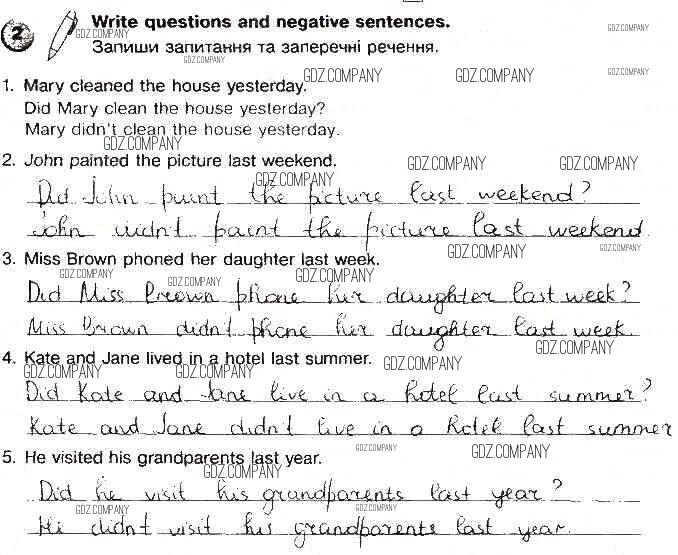 2 Write questions and negative sentences.
Запиши запитання та заперечні речення.
GDZ.COMPANY
GDZ.COMPANY
GDZ.COMPANY
GDZ.COMPANY
GDZ.COMPANY
GDZ.COMPANY
1. Mary cleaned the house yesterday.
Did Mary clean the house yesterday?
Mary didn't clean the house yesterday.
GDZ.COMPANY
2. John painted the picture last weekend.
GDZ.COMPANY
GDZ.COMPANY
GDZ.COMPANY
Did John paint the picture last weekend?
John didn't paint the picture last weekend.
GDZ.COMPANY
GDZ.COMPANY
3. Miss Brown phoned her daughter last week.
GDZ.COMPANY
GDZ.COMPANY
GDZ.COMPANY
Did Miss Brown phone her daughter last week?
Miss Brown didn't phone her daughter last week.
GDZ.COMPANY
4. Kate and Jane lived in a hotel last summer.
GDZ.COMPANY
GDZ.COMPANY
GDZ.COMPANY
Did Kate and Jane live in a hotel last summer?
Kate and Jane didn't live in a hotel last summer
GDZ.COMPANY
GDZ.COMPANY
5. He visited his grandparents last year.
GDZ.COMPANY
Did he visit his grandparents last year?
GDZ.COMPANY
GDZ.COMPANY
Hi didn't visit his grandparents last year.
GDZ.COMPANY
GDZ.COMPANY